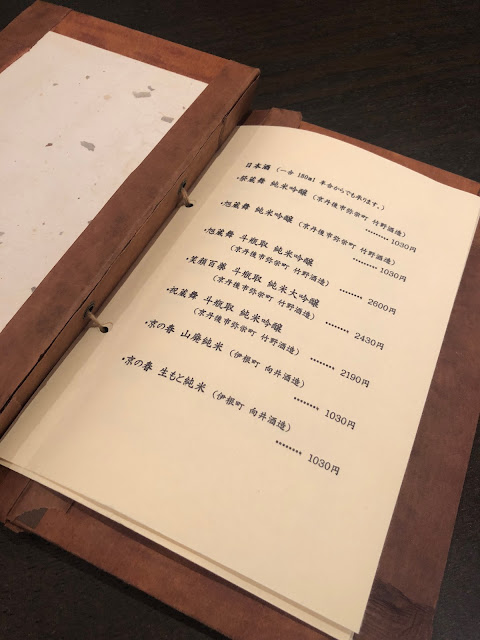 日本酒 (一合 180ml 半合からでも承ります。)
・祭蔵舞 純米吟醸 (京丹後市弥栄町 竹野酒造)
‥‥‥‥ 1030円
・旭蔵舞 純米吟醸 (京丹後市弥栄町 竹野酒造)
‥‥‥‥ 1030円
・旭蔵舞 斗瓶取 純米吟醸
(京丹後市弥栄町 竹野酒造)
‥‥‥‥ 2600円
・笑顔百薬 斗瓶取 純米大吟醸
(京丹後市弥栄町 竹野酒造)
‥‥‥‥ 2430円
・祝蔵舞 斗瓶取 純米吟醸
(京丹後市弥栄町 竹野酒造)
‥‥‥‥ 2190円
・京の春 山廃純米 (伊根町 向井酒造)
‥‥‥‥ 1030円
・京の春 生もと純米 (伊根町 向井酒造)
‥‥‥‥ 1030円